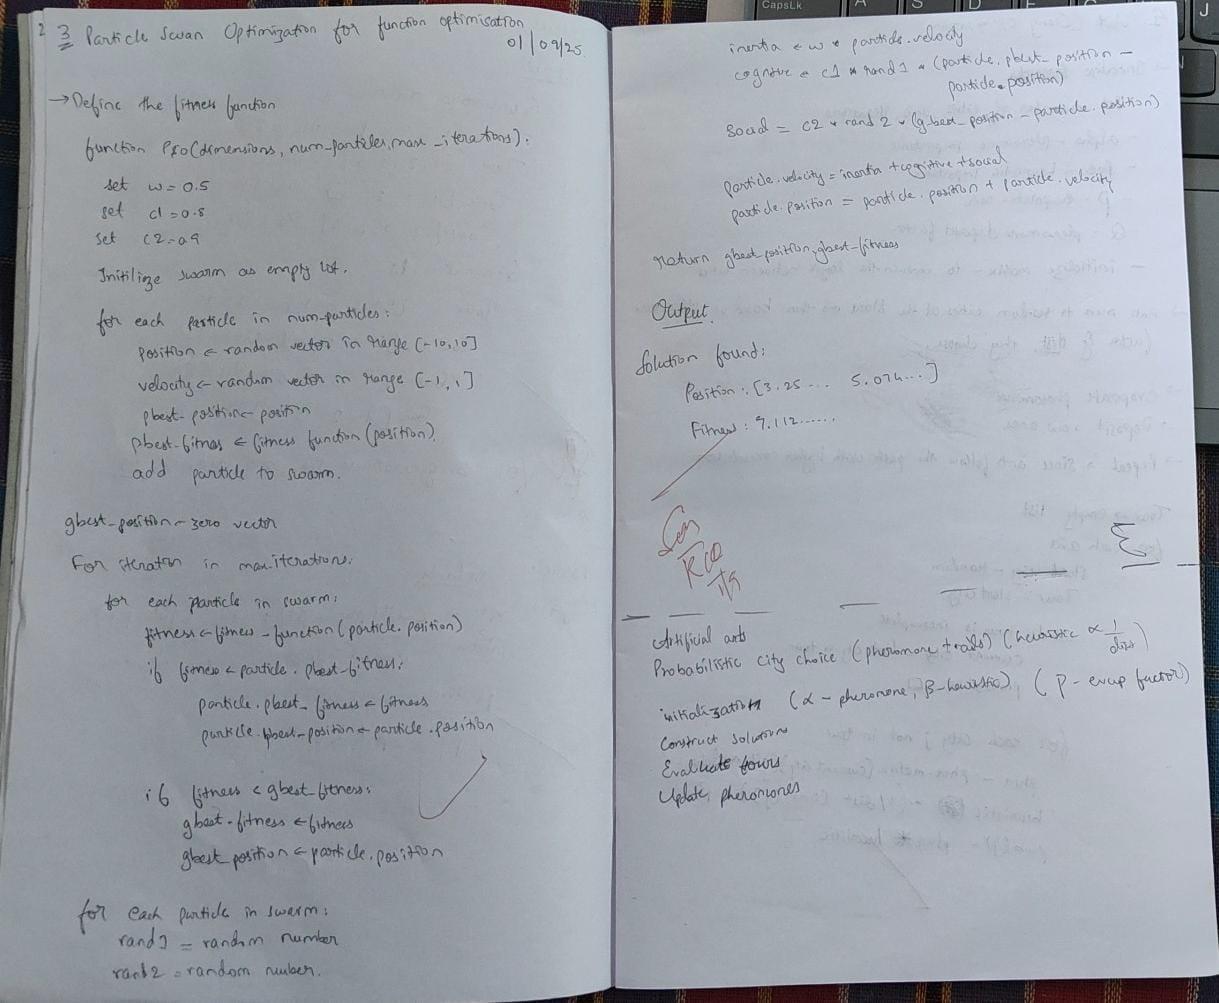 3 Particle Swan Optimization for function optimisation
01/09/25
→ Define the fitness function
function PSO(dimensions, num-particles, max-iterations):
set w = 0.5
set c1 = 0.8
set c2 = 0.9
Initilize swarm as empty list.
for each particle in num-particles:
Position ← random vector in range [-10,10]
velocity ← random vector in range [-1,1]
pbest-position ← position
pbest-fitness ← fitness function (position)
add particle to swarm.
gbest-position ← zero vector
For iteration in max iterations:
for each particle in swarm:
fitness ← fitness-function (particle.position)
if fitness < particle.pbest-fitness:
particle.pbest-fitness ← fitness
particle.pbest-position ← particle.position
if fitness < gbest-fitness:
gbest-fitness ← fitness
gbest position ← particle.position
for each particle in swarm:
rand1 = random number
rand2 = random number.
inertia ← w * particle.velocity
cognitive = c1 * rand1 * (particle.pbest_position -
particle.position)
social = c2 * rand2 * (gbest_position - particle.position)
particle.velocity = inertia + cognitive + social
particle.position = particle.position + particle.velocity
return gbest position, gbest-fitness
Output
Solution found:
Position: [3.25... 5.074...]
Fitness: 9.112......
Artificial ants
Probabilistic city choice (pheromone trails) (heuristic ∝ 1/dist)
initialization (α - pheromone, β - heuristic), (ρ - evap factor)
Construct solutions
Evaluate tours
Update pheromones
CapsLk
A
S
D
J